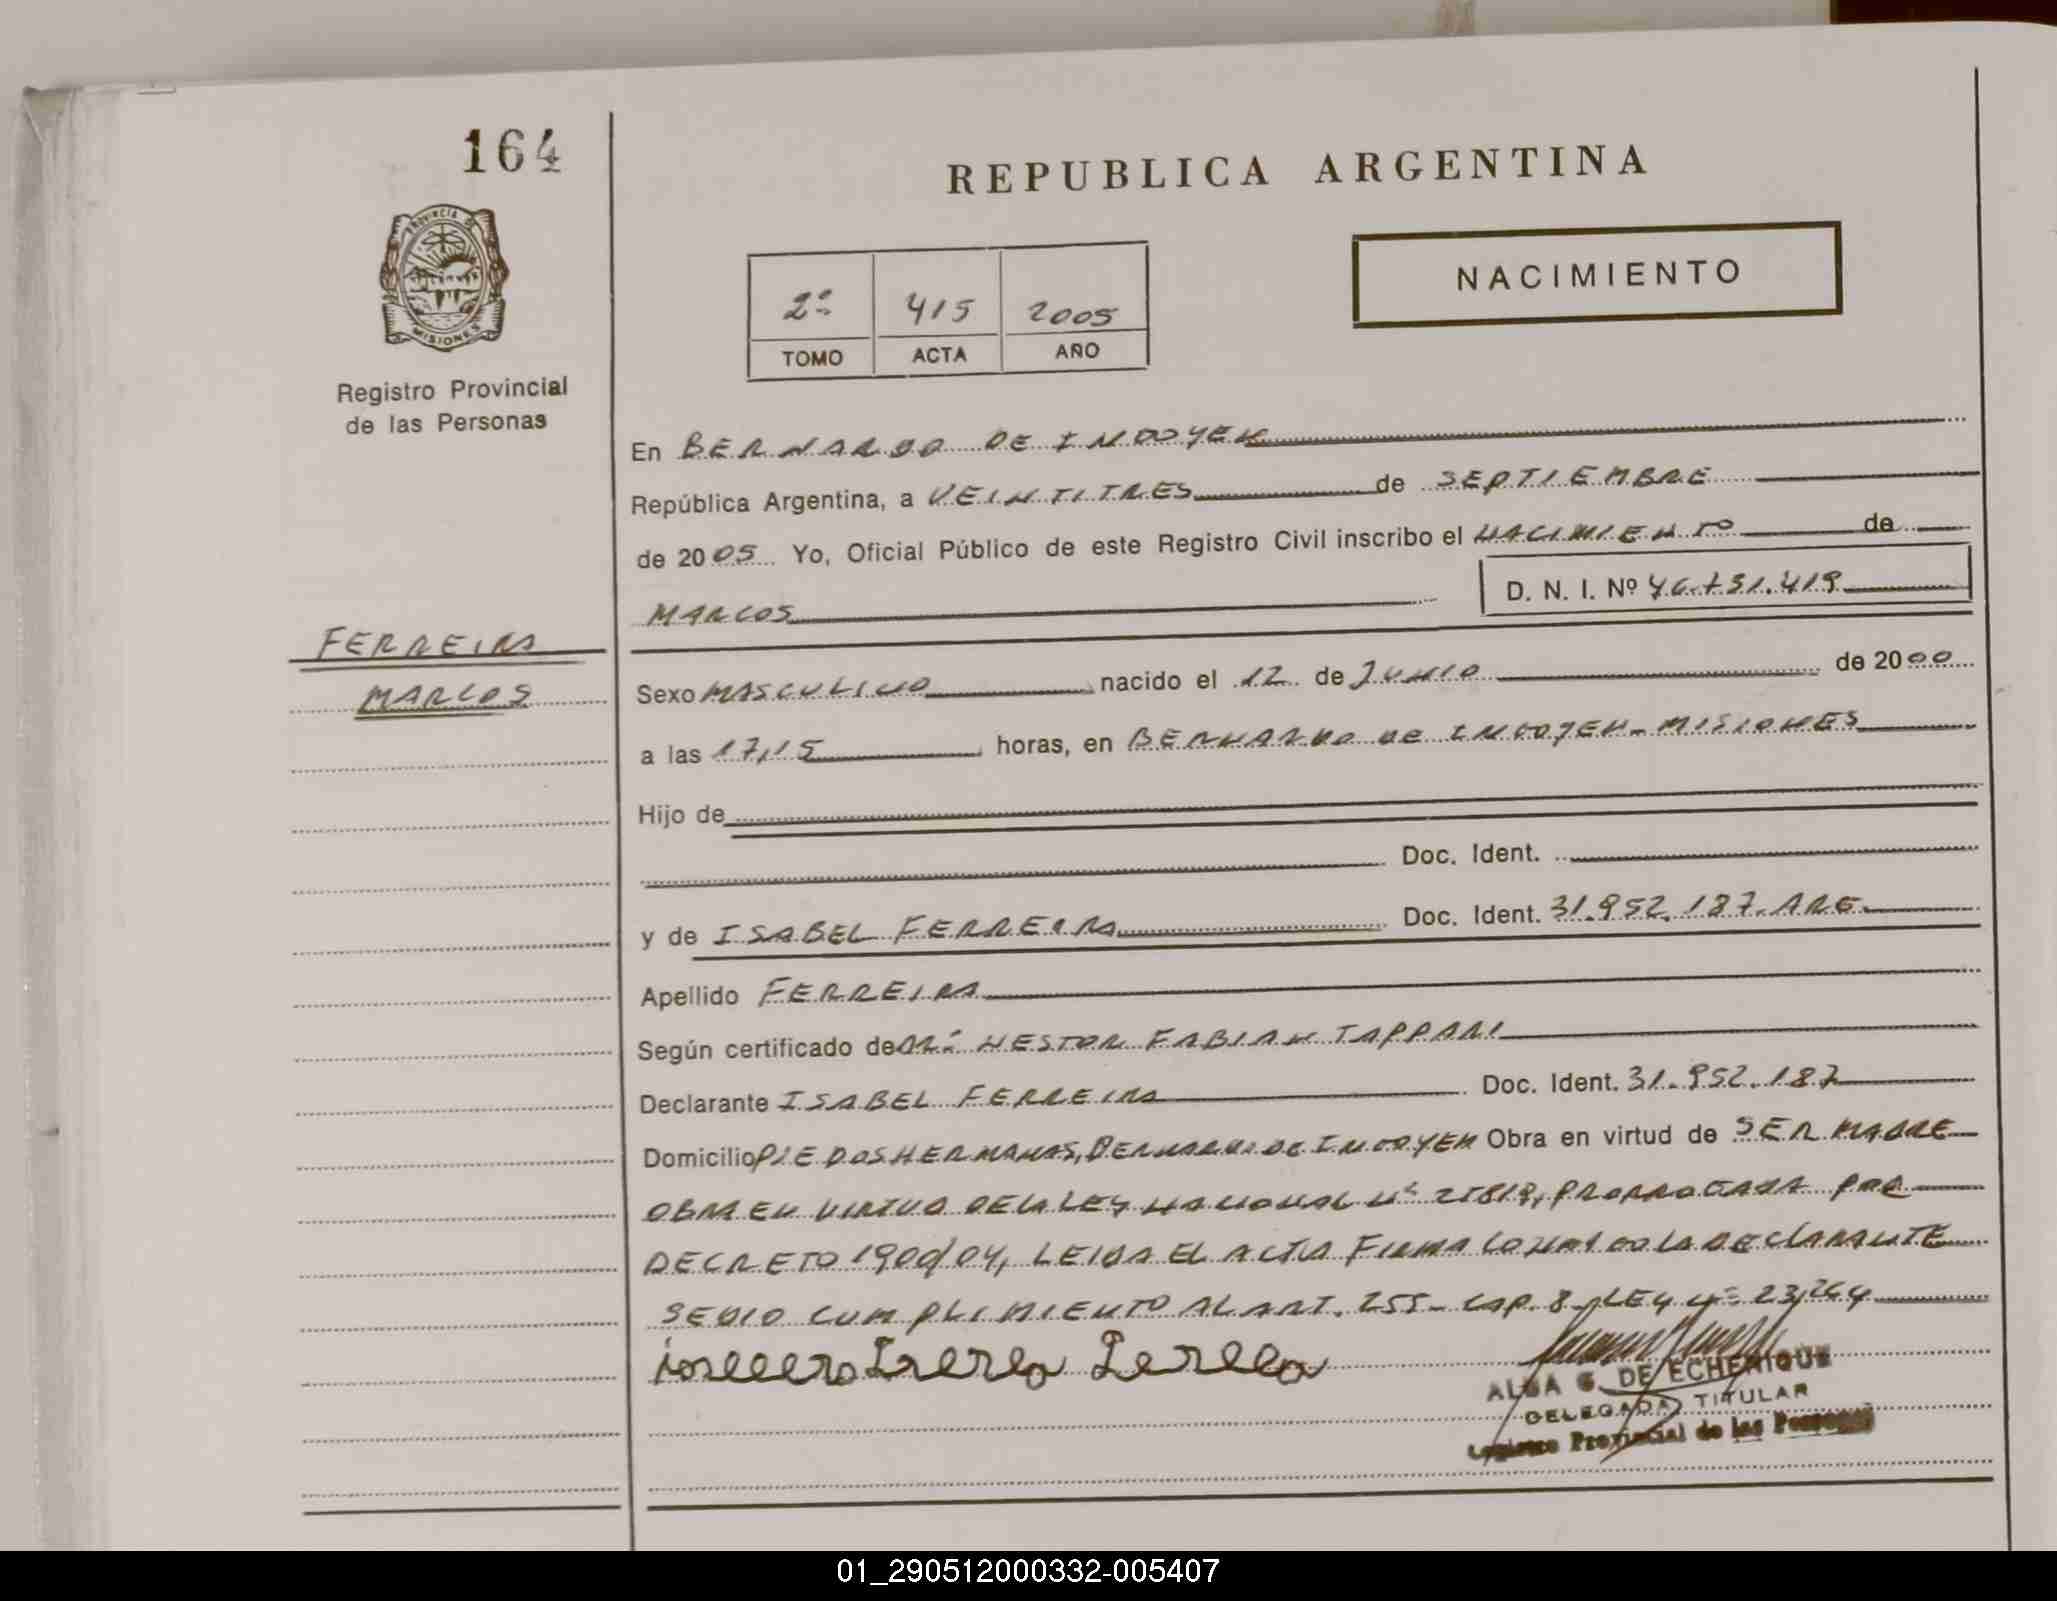 164
REPUBLICA ARGENTINA
PROVINCIA DE
MISIONES
NACIMIENTO
2º 415 2005
TOMO ACTA AÑO
Registro Provincial
de las Personas
En BERNARDO DE IRIGOYEN
República Argentina, a VEINTITRES de SEPTIEMBRE
de 2005 Yo, Oficial Público de este Registro Civil inscribo el NACIMIENTO de
MARCOS D. N. I. Nº 46.731.419
FERREIRA
MARCOS
Sexo MASCULINO nacido el 12 de JUNIO de 2000
a las 17,15 horas, en BERNARDO DE IRIGOYEN - MISIONES
Hijo de
Doc. Ident.
y de ISABEL FERREIRA Doc. Ident. 31.952.187. ARG.
Apellido FERREIRA
Según certificado de DR: NESTOR FABIAN TAPPARI
Declarante ISABEL FERREIRA Doc. Ident. 31.952.187
Domicilio PJE DOS HERMANAS, BERNARDO DE IRIGOYEN Obra en virtud de SER MADRE
OBRA EN VIRTUD DE LA LEY NACIONAL Nº 25819, PRORROGADA POR
DECRETO 1900/04, LEIDA EL ACTA FIRMA CONMIGO LA DECLARANTE
SE DIO CUMPLIMIENTO AL ART. 255 - CAP. 8 - LEY Nº 23,264
ALBA G. DE ECHENIQUE
DELEGADA TITULAR
Registro Provincial de las Personas
01_290512000332-005407